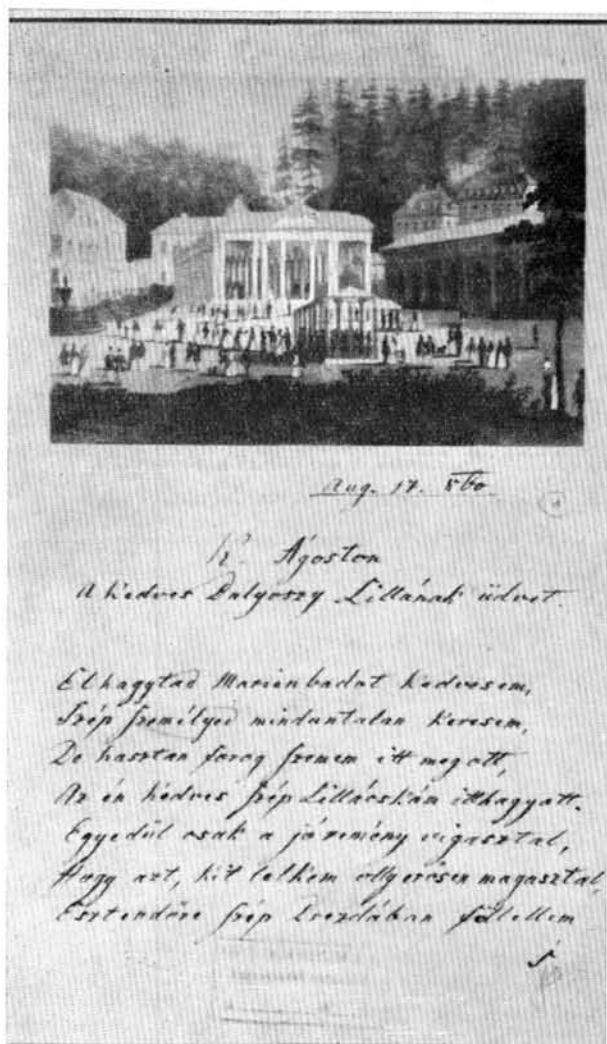 Aug. 17. 860
K. Ágoston
A Kedves Dalgoszy Lillának üdvet.
Elhagytad Marienbadat Kedvesem,
Szép személyed minduntalan keresem,
De hasztan forog szemem itt meg ott,
Az én kedves szép Lillácskám itthagyott.
Egyedül csak a jó remény vigasztal,
Hogy azt, kit lelkem ollyerősen magasztal,
Esztendőre szép Drezdában fellellem